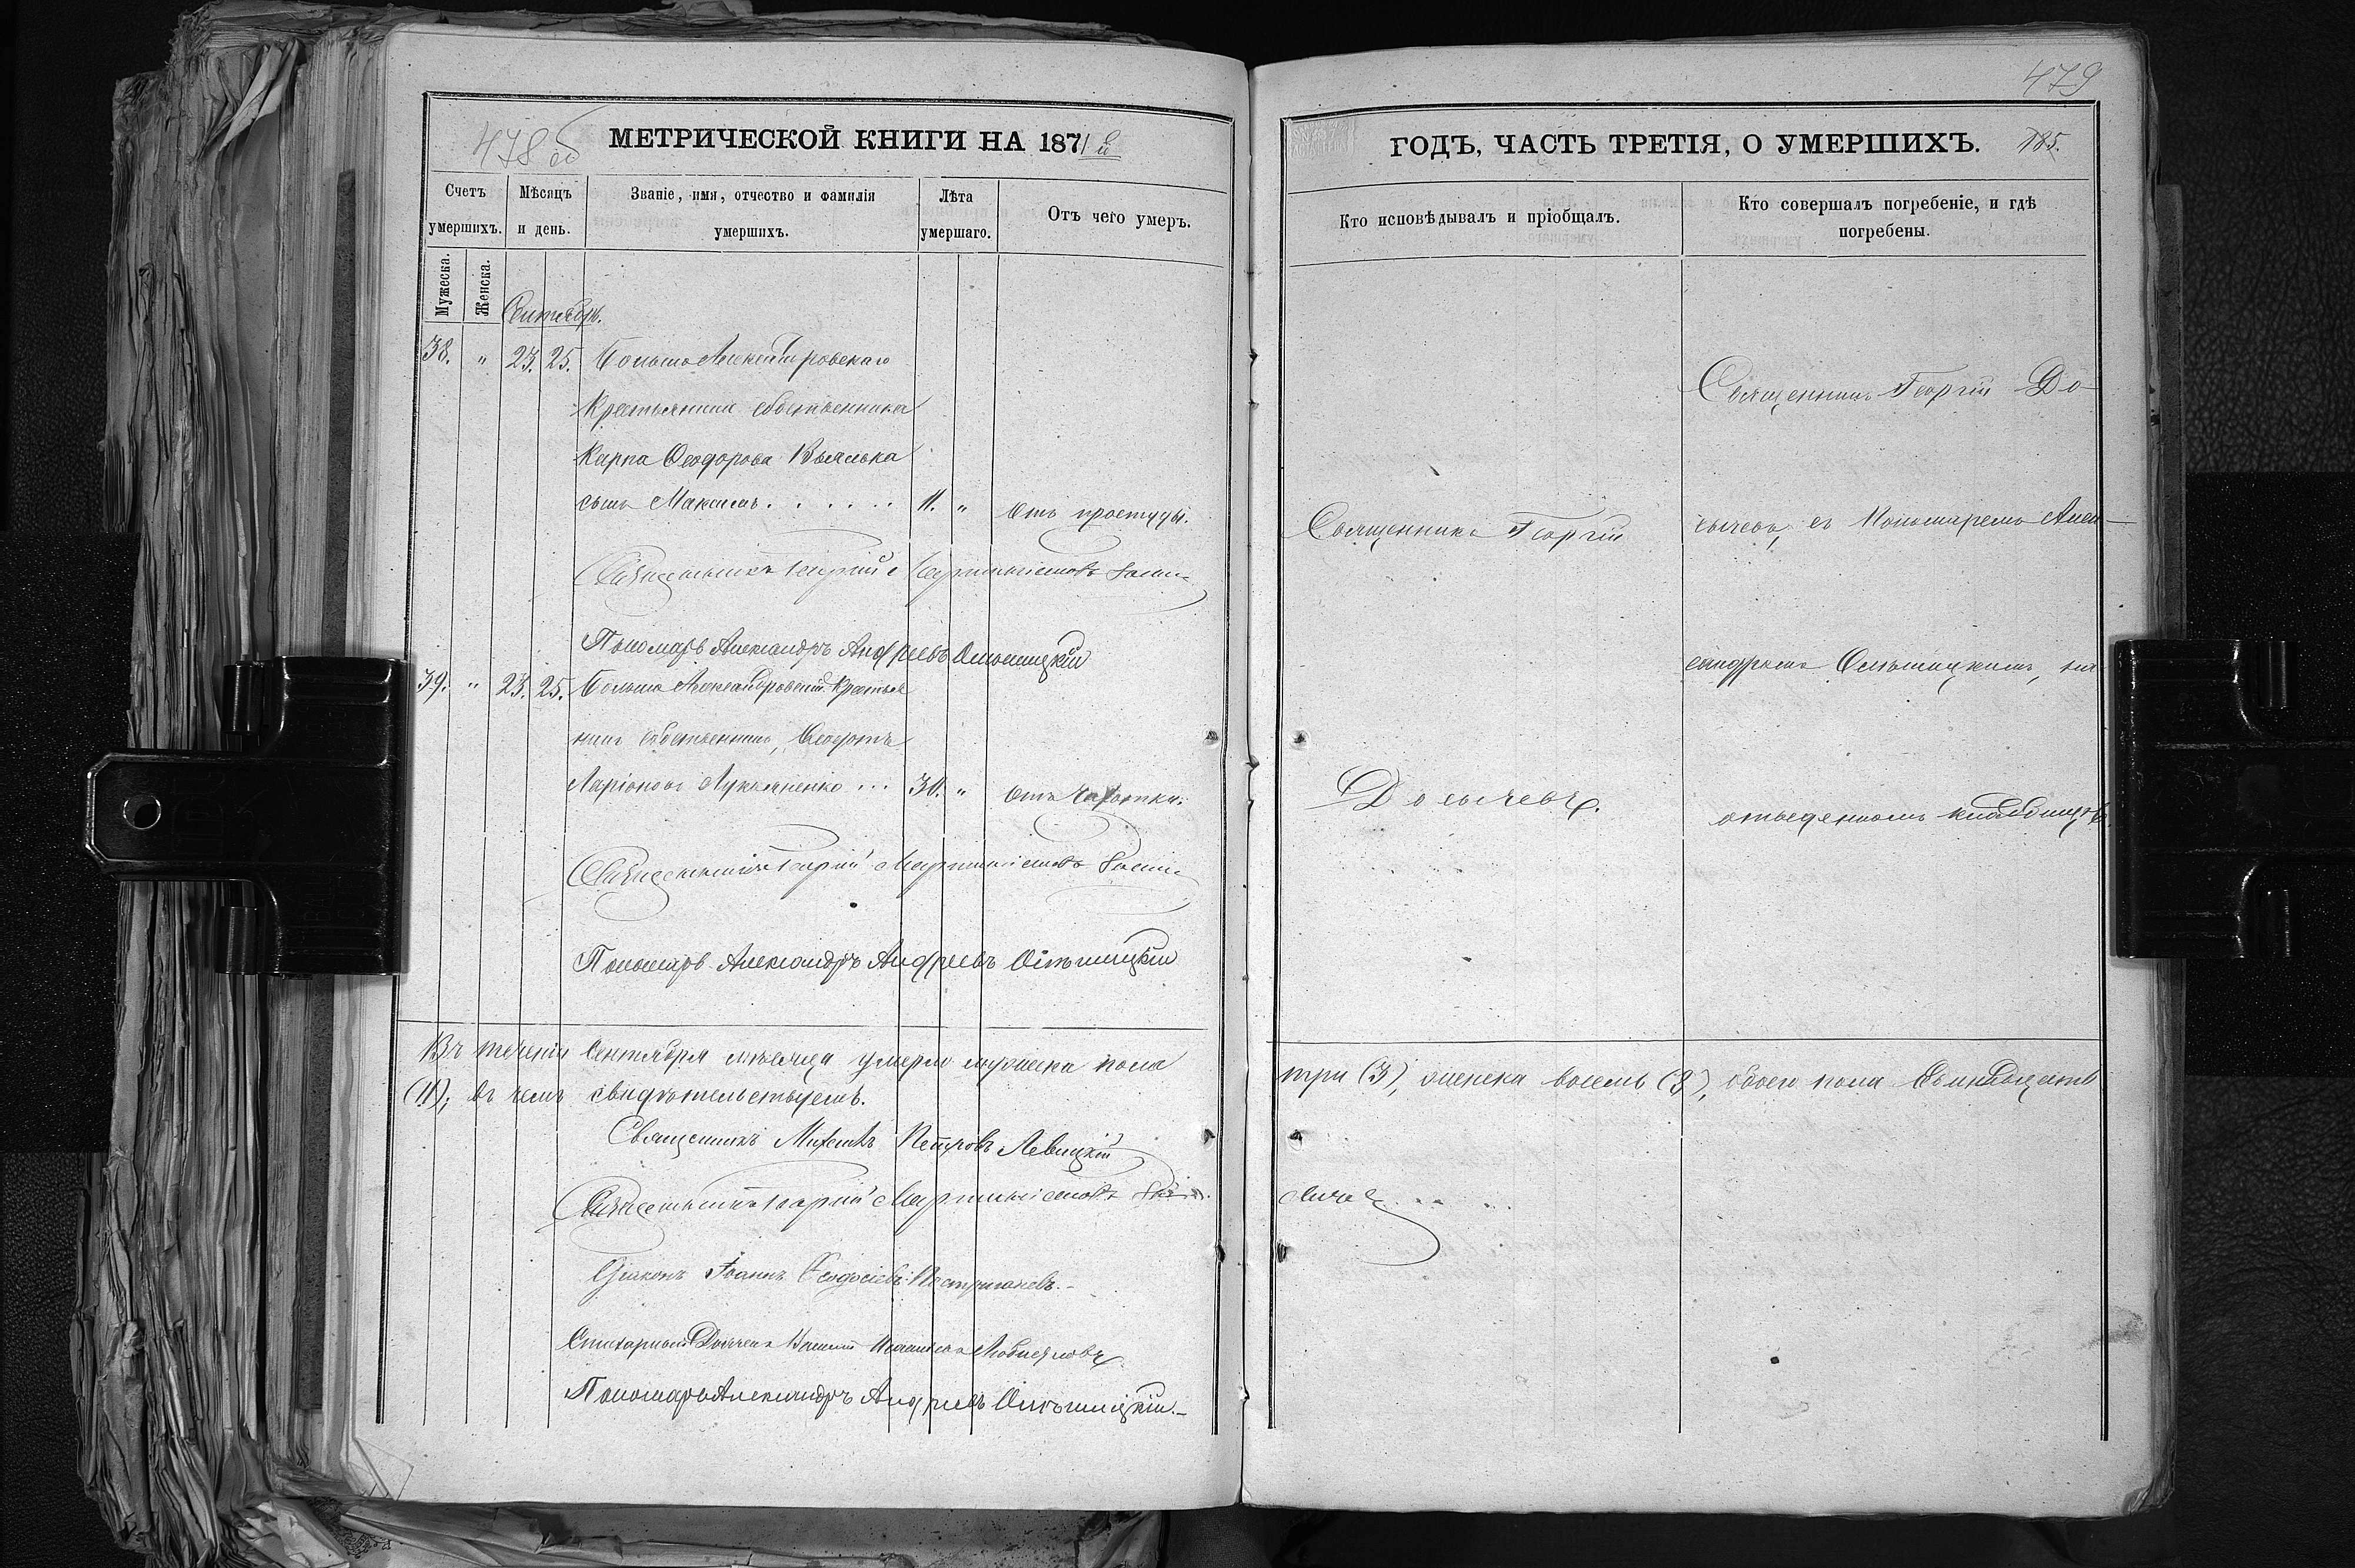 478 об
МЕТРИЧЕСКОЙ КНИГИ НА 1871 й
Счетъ умершихъ.
Мѣсяцъ и день.
Званіе, имя, отчество и фамилія умершихъ.
Лѣта умершаго.
Отъ чего умеръ.
Мужеска.
Женска.
Сентябрь.
38. " 23. 25. Больше Александровскаго
крестьянина собственника
Карпа Ѳеодорова
сынъ Максимъ. . . . . . 11. " Отъ простуды.
Священникъ Георгій
Пономарь Александръ Андреевъ
39. " 23. 25. Больше Александровскій крестья
нинъ собственникъ, Ѳеодотъ
Ларіоновъ Лукьяненко ... 30. " Отъ чахотки.
Священникъ Георгій
Пономарь Александръ Андреевъ
Въ теченіи Сентября мѣсяца умерло мужеска пола
(11), въ чемъ свидѣтельствуемъ.
Священникъ Михаилъ Петровъ Левицкій
Священникъ Георгій
Діаконъ Іоаннъ Ѳеодосіевъ
Пономарь Александръ Андреевъ
479
ГОДЪ, ЧАСТЬ ТРЕТІЯ, О УМЕРШИХЪ.
185.
Кто исповѣдывалъ и пріобщалъ.
Кто совершалъ погребеніе, и гдѣ погребены.
Священникъ Георгій До-
Священникъ Георгій
сычевъ, съ Пономаремъ Алек-
сандромъ на
Досычевъ.
отведенномъ кладбищѣ.
три (3), женска восемь (8), обоего пола одинадцать